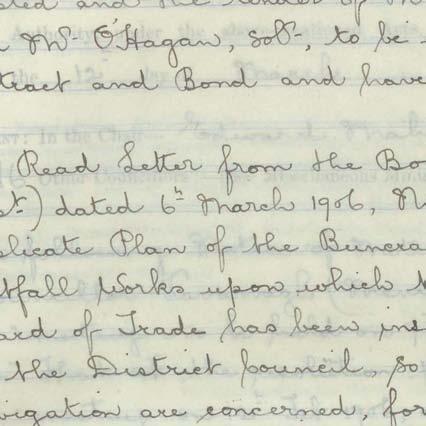 and the tender of
Mr. O'Hagan, Solr., to be
tract and Bond and have
Read Letter from the Bo
st.) dated 6th March 1906, N
plicate Plan of the Buncra
tfall Works upon which t
ard of Trade has been ins
the District Council, so
vigation are concerned, for